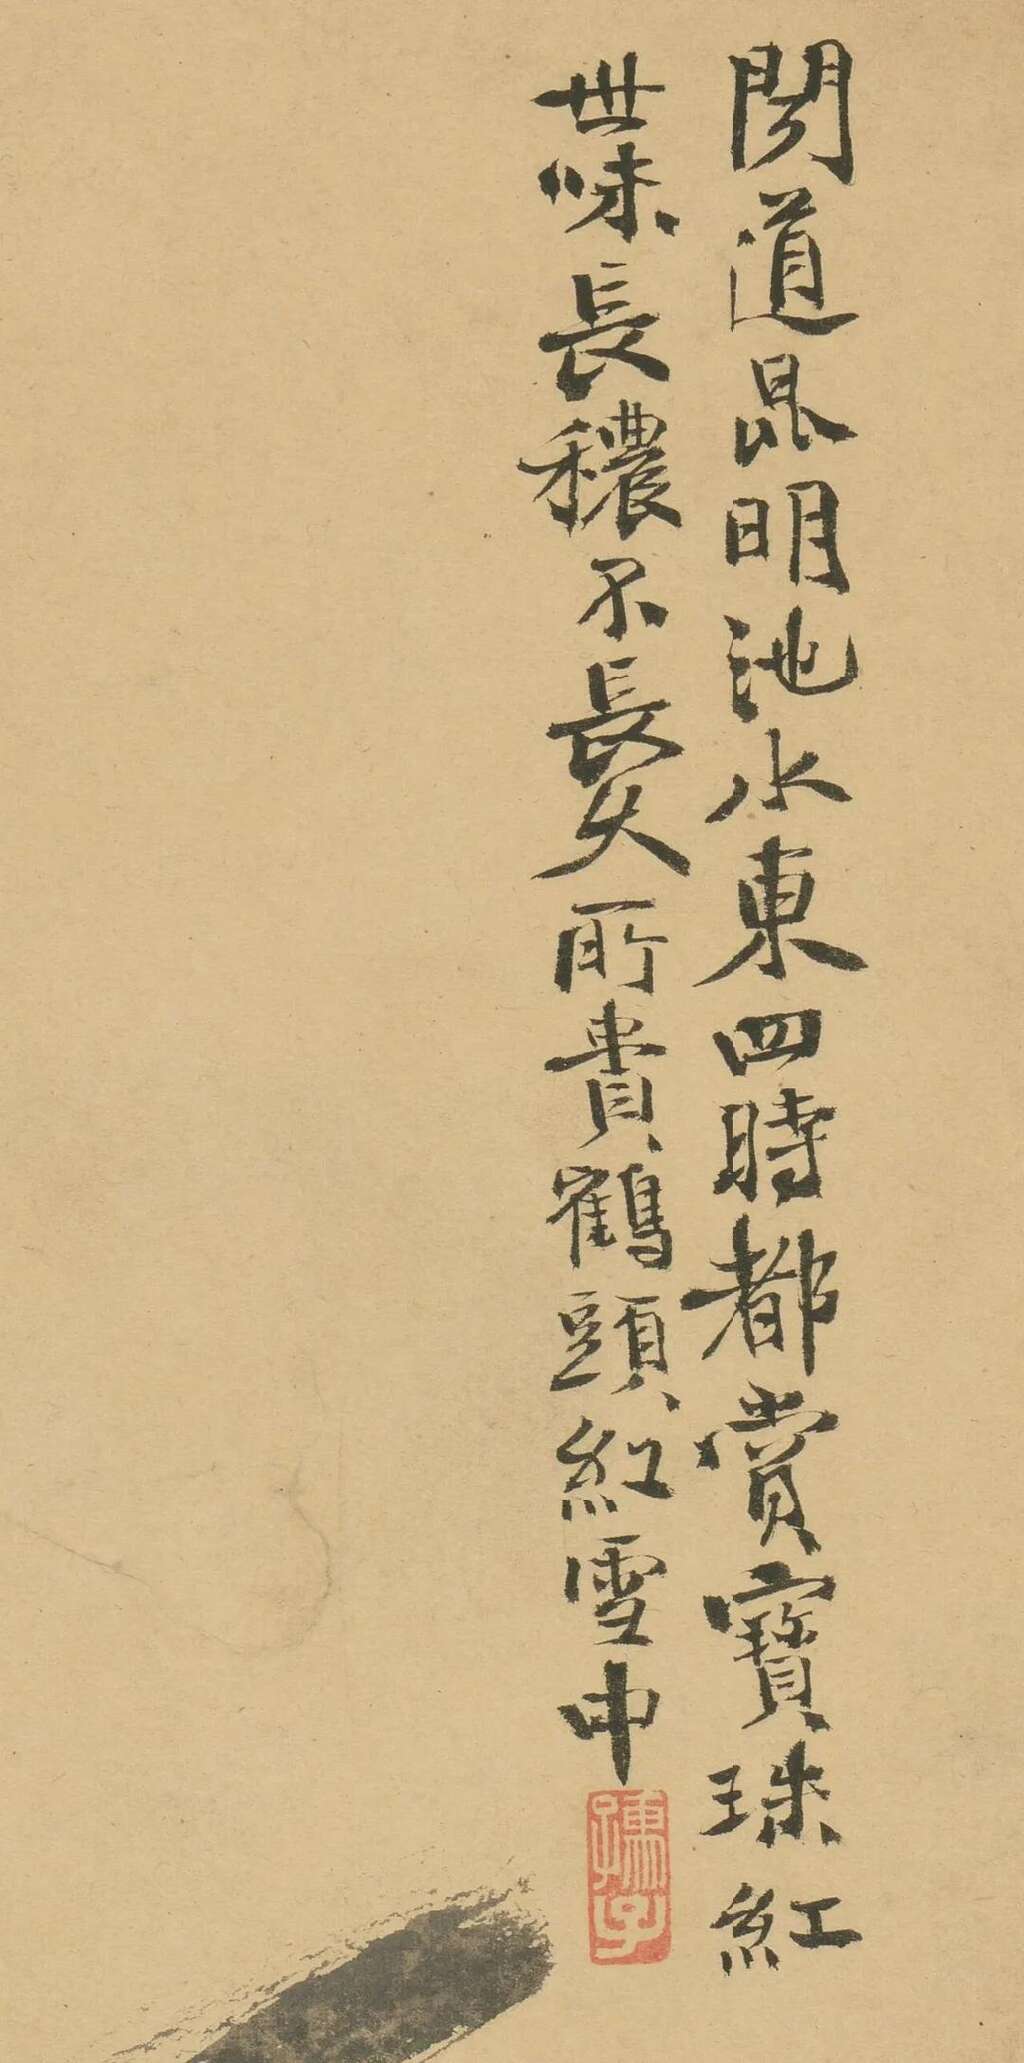 聞道昆明池水東四時都賞寶珠紅
世味長穠不長久所貴鶴頭紅雪中